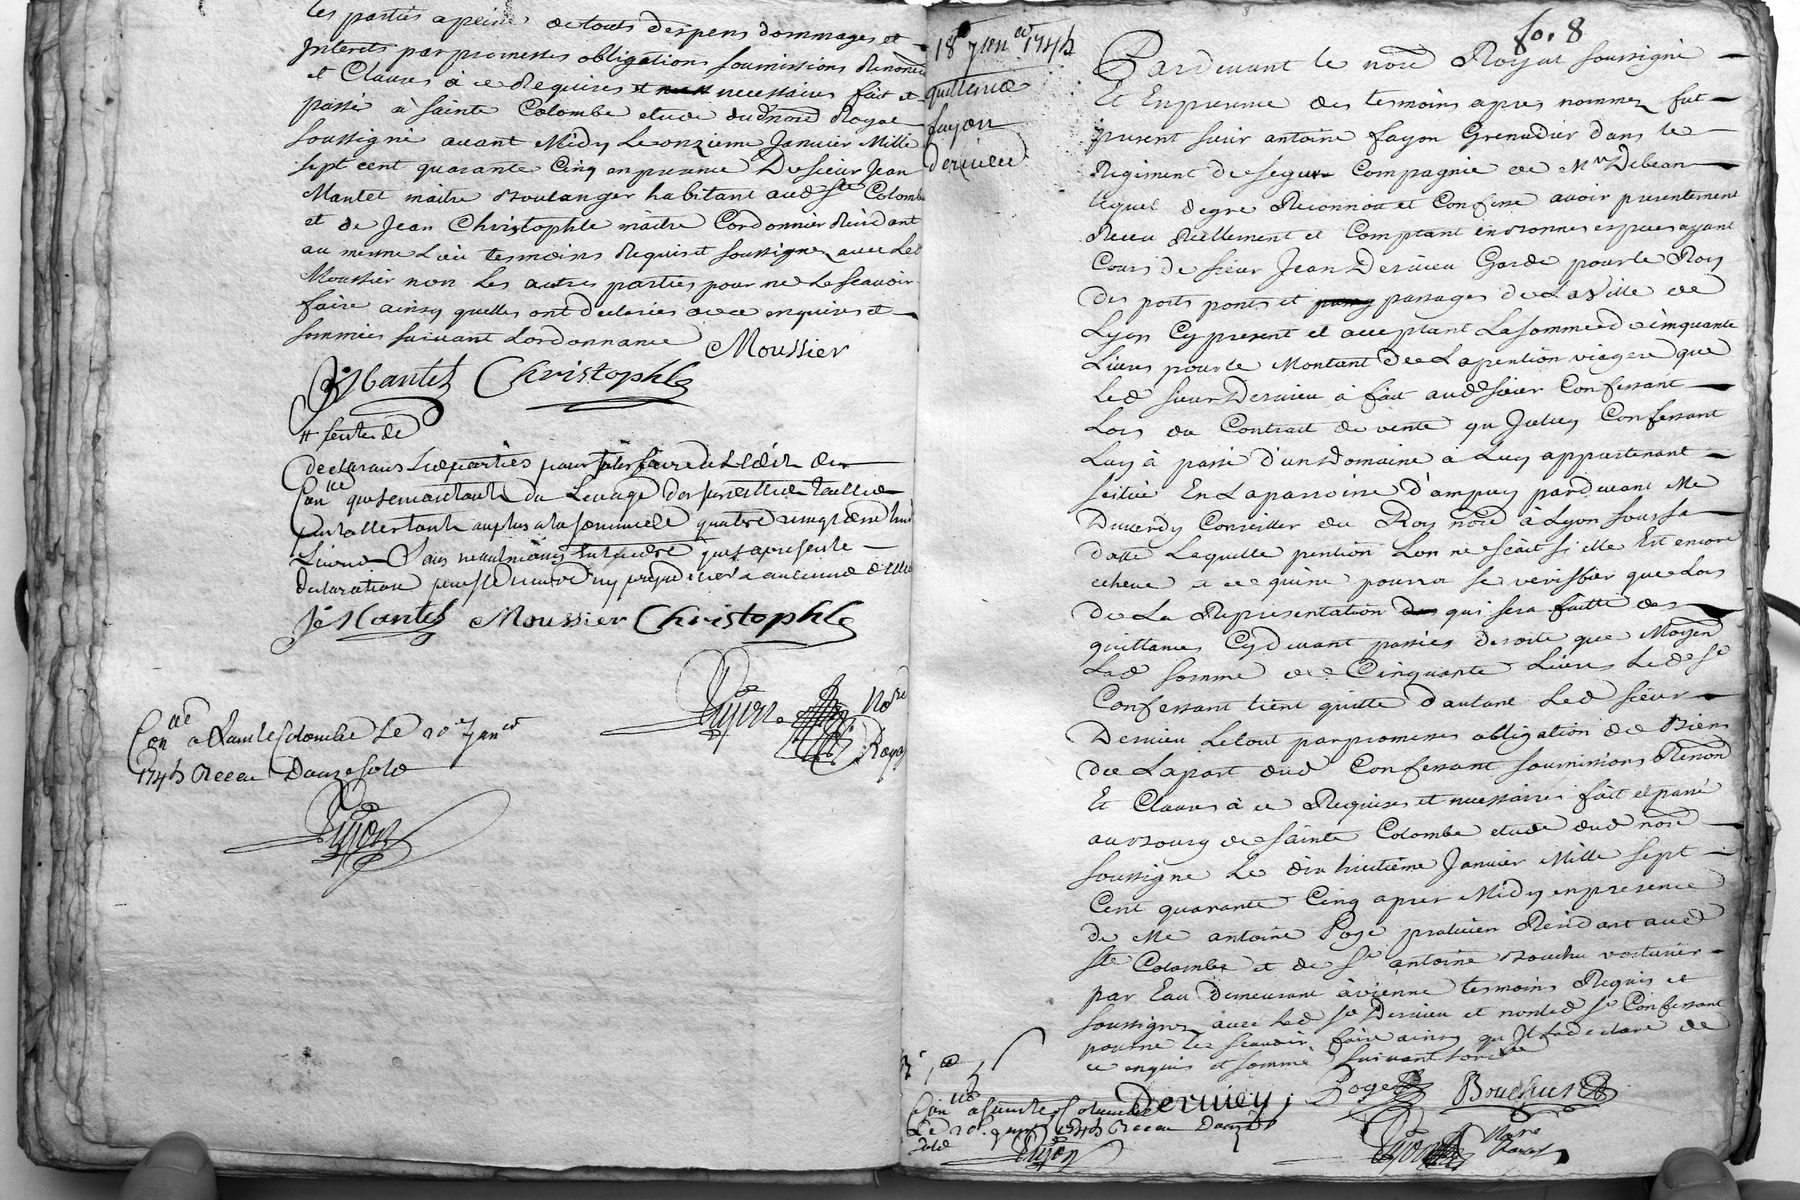 les parties a peine de touts despens dommages et
Interets par promesses obligations soumissions Renonci
et Clauses à ce Requises et necessaires fait et
passé à Sainte Colombe etude dud nore Royal
soussigné avant Midy Le onzieme Janvier Mille
sept cent quarante Cinq en presence De sieur Jean
Mantel maitre Boulanger habitant aud Ste Colombe
et de Jean Christophle maitre Cordonnier Residant
au meme Lieu temoins Requis et soussignez avec Led
Moussier non Les autres parties pour ne Le scavoir
faire ainsy quelles ont declarées de ce enquises et
sommées suivant Lordonnance Moussier
J Mantel Christophle
declarants Lesd parties pour
Livres Sans neantmoins que la presente
declaration puisse nuire ny prejudicier a aucune delles
J Mantel Moussier Christophle
Nore
Royal
Conlé a Sainte Colombe Le 20e Janer
1745 Receu Douze sols
fo. 8
18e Janer 1745
quittance
fayon
Dervieu
Pardevant le nore Royal soussigné
Et En presence des temoins apres nommez fut
present sieur antoine fayon Grenadier dans le
Regiment de segur Compagnie de Mr Debean
lequel de gre Reconnoit et Confesse avoir presentement
Receu Reellement et Comptant en bonnes especes ayant
Cours de sieur Jean Dervieu Garde pour le Roy
des ports ponts et passages de La Ville de
Lyon Cy present et acceptant La somme de cinquante
Livres pour le Montant de La pention viagere que
Led sieur Dervieu à fait aud sieur Confessant
Lors du Contrait de vente qu Juluy Confessant
Luy à passé d'un Domaine a Luy appartenant
scitué En La parroisse d'ampuy pardevant Me
Duverdy Conseiller du Roy nore à Lyon sous sa
datte Laquelle pention Lon ne scait si elle Est encore
echeue et ce qui ne pourra se veriffier que Lors
de La Representation qui sera faitte des
quittances Cy devant passées de sorte que Moyend
Lad somme de Cinquante Livres Led Sr
Confessant tient quitte d'autant Led sieur
Dervieu Le tout par promesses obligation de Biens
de La part dud Confessant soumissions Renond
Et Clauses à ce Requises et necessaires fait et passé
au Bourg de Sainte Colombe etude dud nore
soussigné Le dix huitième Janvier Mille sept
Cent quarante Cinq apres Midy en presence
de Me antoine Poge praticien Residant aud
Ste Colombe et de Sr antoine Bouchu voiturier
par Eau demeurant à vienne temoins Requis et
soussignez avec Led Sr Dervieu et non led Sr Confessant
pour ne les scavoir faire ainsy qu Jl La declaré de
ce enquis et sommé suivant lordce
Dervieu Poge Bouchu
Conlé a Sainte Colombe
Le 20e Janer 1745 Receu Douze
sols
Nore
Royal